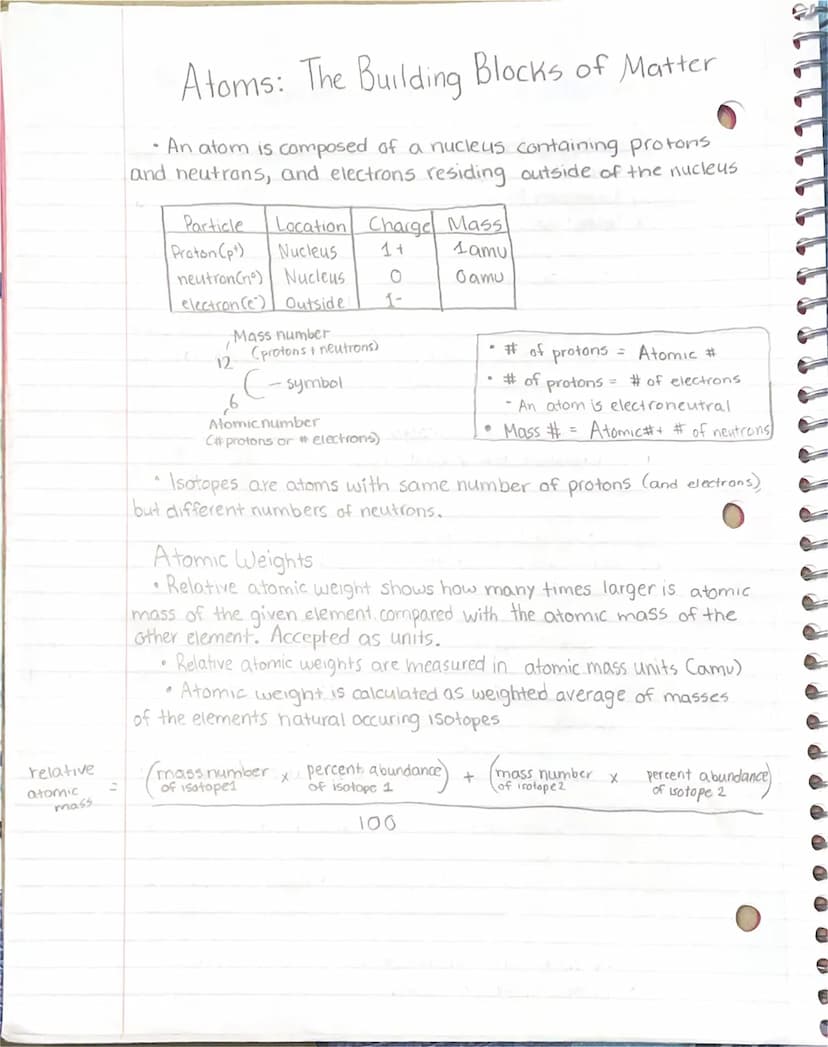 Atoms: The Building Blocks of Matter
• An atom is composed of a nucleus containing protons
and neutrons, and electrons residing outside of the nucleus
Particle Location Charge Mass
Proton(p⁺) Nucleus 1+ 1amu
neutron(n⁰) Nucleus 0 0amu
electron(e⁻) Outside 1-
Mass number
(protons + neutrons)
12
C - symbol
6
Atomic number
(# protons or # electrons)
• # of protons = Atomic #
• # of protons = # of electrons
- An atom is electroneutral
• Mass # = Atomic# + # of neutrons
• Isotopes are atoms with same number of protons (and electrons),
but different numbers of neutrons.
Atomic Weights
• Relative atomic weight shows how many times larger is atomic
mass of the given element compared with the atomic mass of the
other element. Accepted as units.
• Relative atomic weights are measured in atomic mass units (amu)
• Atomic weight is calculated as weighted average of masses
of the elements natural occuring isotopes
relative
atomic
mass
= (mass number of isotope 1 x percent abundance of isotope 1) + (mass number of isotope 2 x percent abundance of isotope 2)
100